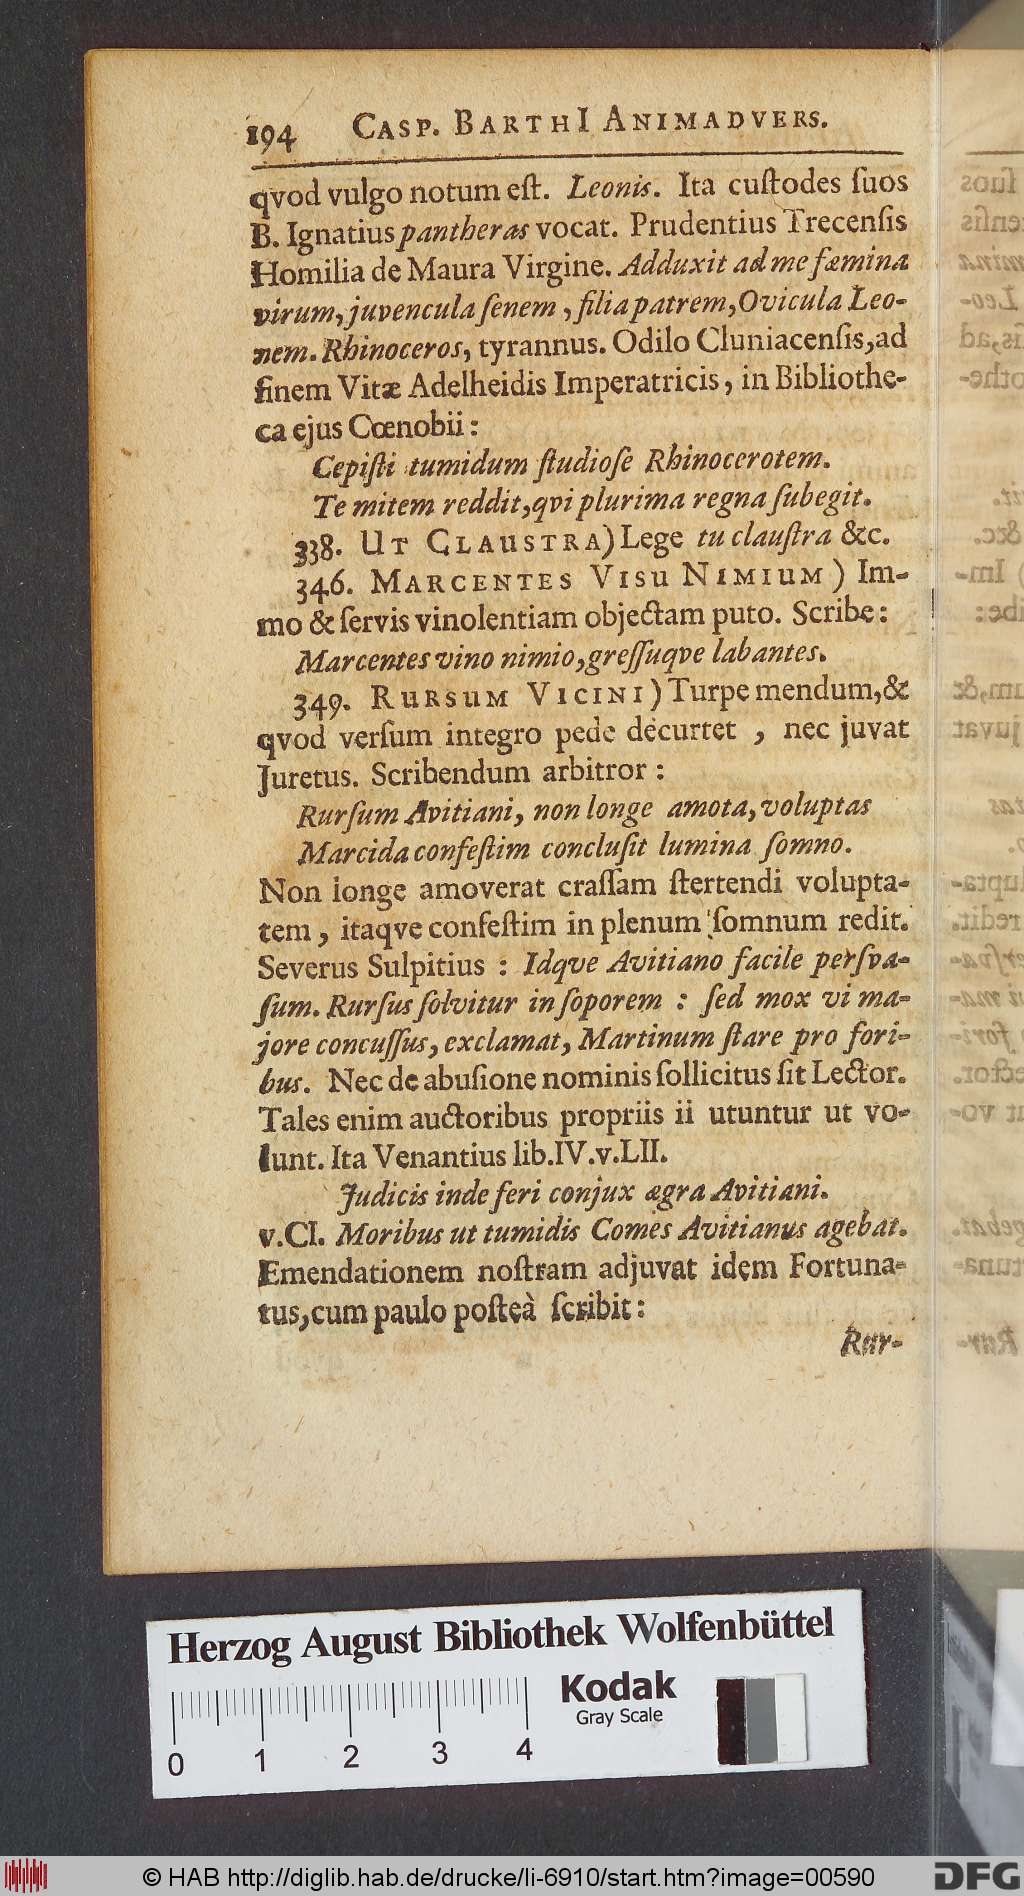 194 CASP. BARTHI ANIMADVERS.
qvod vulgo notum eſt. Leonis. Ita cuſtodes ſuos
B. Ignatius pantheras vocat. Prudentius Trecenſis
Homilia de Maura Virgine. Adduxit ad me fæmina
virum, juvencula ſenem, filia patrem, Ovicula Leo-
nem. Rhinoceros, tyrannus. Odilo Cluniacenſis, ad
finem Vitæ Adelheidis Imperatricis, in Bibliothe-
ca ejus Cœnobii:
Cepiſti tumidum ſtudioſe Rhinocerotem.
Te mitem reddit, qvi plurima regna ſubegit.
338. UT CLAUSTRA) Lege tu clauſtra &c.
346. MARCENTES VISU NIMIUM) Im-
mo & ſervis vinolentiam objectam puto. Scribe:
Marcentes vino nimio, greſſuqve labantes.
349. RURSUM VICINI) Turpe mendum, &
qvod verſum integro pede decurtet, nec juvat
Juretus. Scribendum arbitror:
Rurſum Avitiani, non longe amota, voluptas
Marcida confeſtim concluſit lumina ſomno.
Non longe amoverat craſſam ſtertendi volupta-
tem, itaqve confeſtim in plenum ſomnum redit.
Severus Sulpitius: Idqve Avitiano facile perſva-
ſum. Rurſus ſolvitur in ſoporem: ſed mox vi ma-
jore concuſſus, exclamat, Martinum ſtare pro fori-
bus. Nec de abuſione nominis ſollicitus ſit Lector.
Tales enim auctoribus propriis ii utuntur ut vo-
lunt. Ita Venantius lib.IV.v.LII.
Judicis inde feri conjux ægra Avitiani.
v.CI. Moribus ut tumidis Comes Avitianus agebat.
Emendationem noſtram adjuvat idem Fortuna-
tus, cum paulo poſteà ſcribit:
Rur-
Herzog August Bibliothek Wolfenbüttel
Kodak
Gray Scale
0 1 2 3 4
© HAB http://diglib.hab.de/drucke/li-6910/start.htm?image=00590
DFG